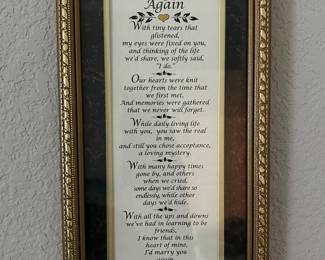 Again
With tiny tears that
glistened,
my eyes were fixed on you,
and thinking of the life
we'd share, we softly said,
"I do."
Our hearts were knit
together from the time that
we first met,
And memories were gathered
that we never will forget.
While daily living life
with you, you saw the real
in me,
and still you chose acceptance,
a loving mystery.
With many happy times
gone by, and others
when we cried,
some days we'd share so
endlessly, while other
days we'd hide.
With all the ups and downs
we've had in learning to be
friends,
I know that in this
heart of mine,
I'd marry you
again